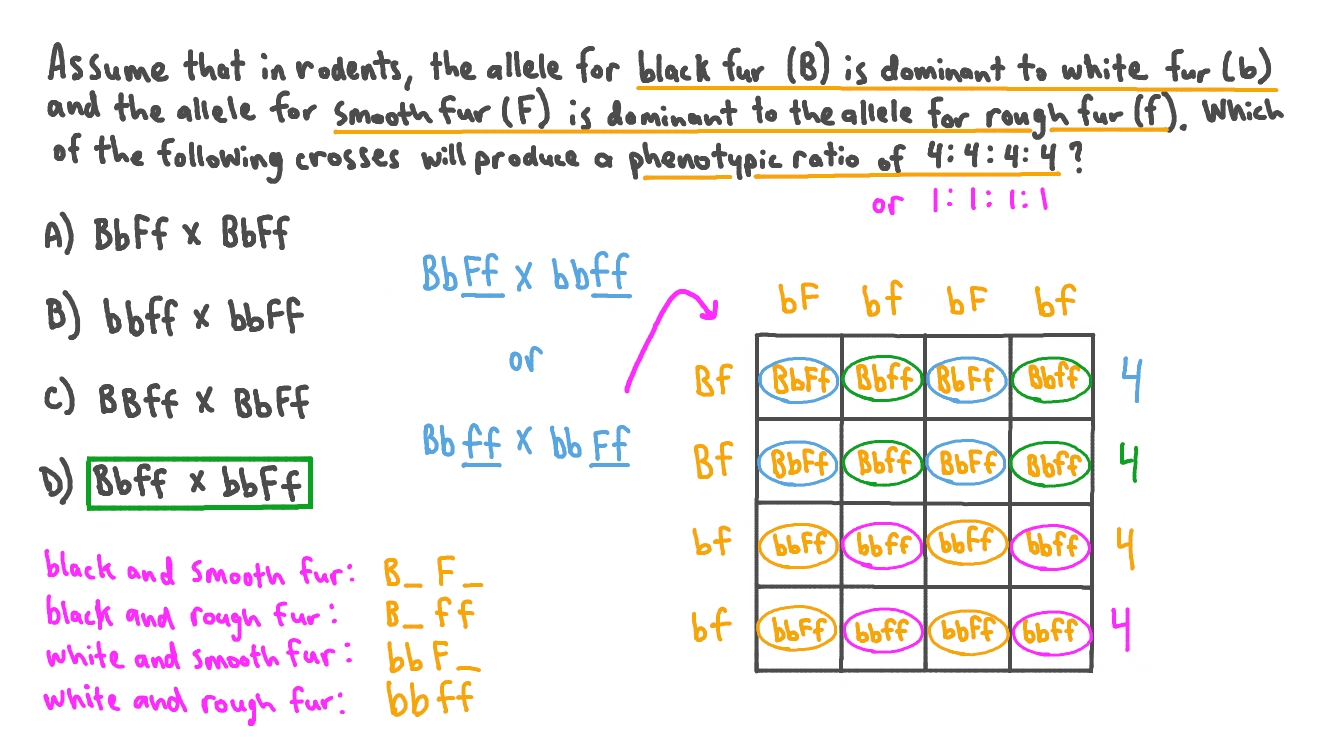 Assume that in rodents, the allele for black fur (B) is dominant to white fur (b)
and the allele for smooth fur (F) is dominant to the allele for rough fur (f). Which
of the following crosses will produce a phenotypic ratio of 4:4:4:4?
or 1:1:1:1
A) BbFf x BbFf
B) bbff x bbFf
C) BBff x BbFf
D) Bbff x bbFf
BbFf x bbff
or
Bbff x bbFf
black and smooth fur: B_ F_
black and rough fur: B_ff
white and smooth fur: bbF_
white and rough fur: bbff
bF bf bF bf
Bf BbFf Bbff BbFf Bbff 4
Bf BbFf Bbff BbFf Bbff 4
bf bbFf bbff bbFf bbff 4
bf bbFf bbff bbFf bbff 4